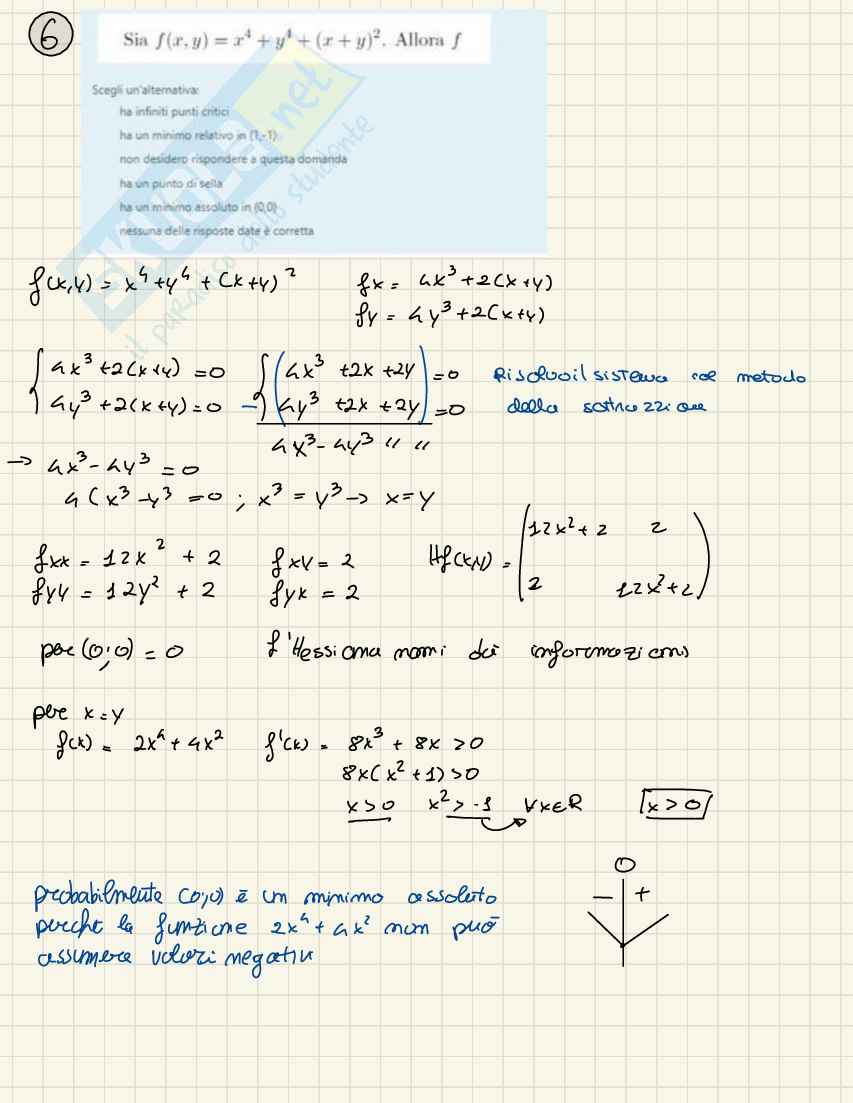 6
Sia f(x, y) = x⁴ + y⁴ + (x + y)². Allora f
Scegli un'alternativa:
ha infiniti punti critici
ha un minimo relativo in (1,-1)
non desidero rispondere a questa domanda
ha un punto di sella
ha un minimo assoluto in (0,0)
nessuna delle risposte date è corretta
SKUOLA.net
il paradiso dello studente
f(x,y) = x⁴ + y⁴ + (x+y)² fx = 4x³ + 2(x+y)
fy = 4y³ + 2(x+y)
{ 4x³ + 2(x+y) = 0 { ( 4x³ + 2x + 2y ) = 0 Risolvo il sistema col metodo
4y³ + 2(x+y) = 0 - ( 4y³ + 2x + 2y ) = 0 della sottrazione
4x³ - 4y³ // //
→ 4x³ - 4y³ = 0
4(x³ - y³ = 0 ; x³ = y³ → x = y
fxx = 12x² + 2 fxy = 2 Hf(x,y) = ( 12x² + 2 2
fyy = 12y² + 2 fyx = 2 2 12x² + 2 )
per (0;0) = 0 L'Hessiana non mi dà informazioni
per x = y
f(x) = 2x⁴ + 4x² f'(x) = 8x³ + 8x > 0
8x(x² + 1) > 0
x > 0 x² > -1 ∀x∈R x > 0
0
- +
probabilmente (0;0) è un minimo assoluto
perché la funzione 2x⁴ + 4x² non può
assumere valori negativi